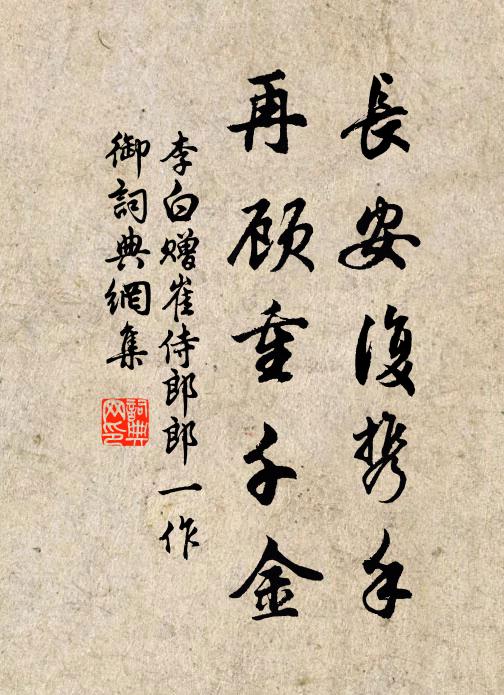 長安復携手
再顾重千金
李白赠崔侍郎郎一作
御詞典網集
詞典
网印